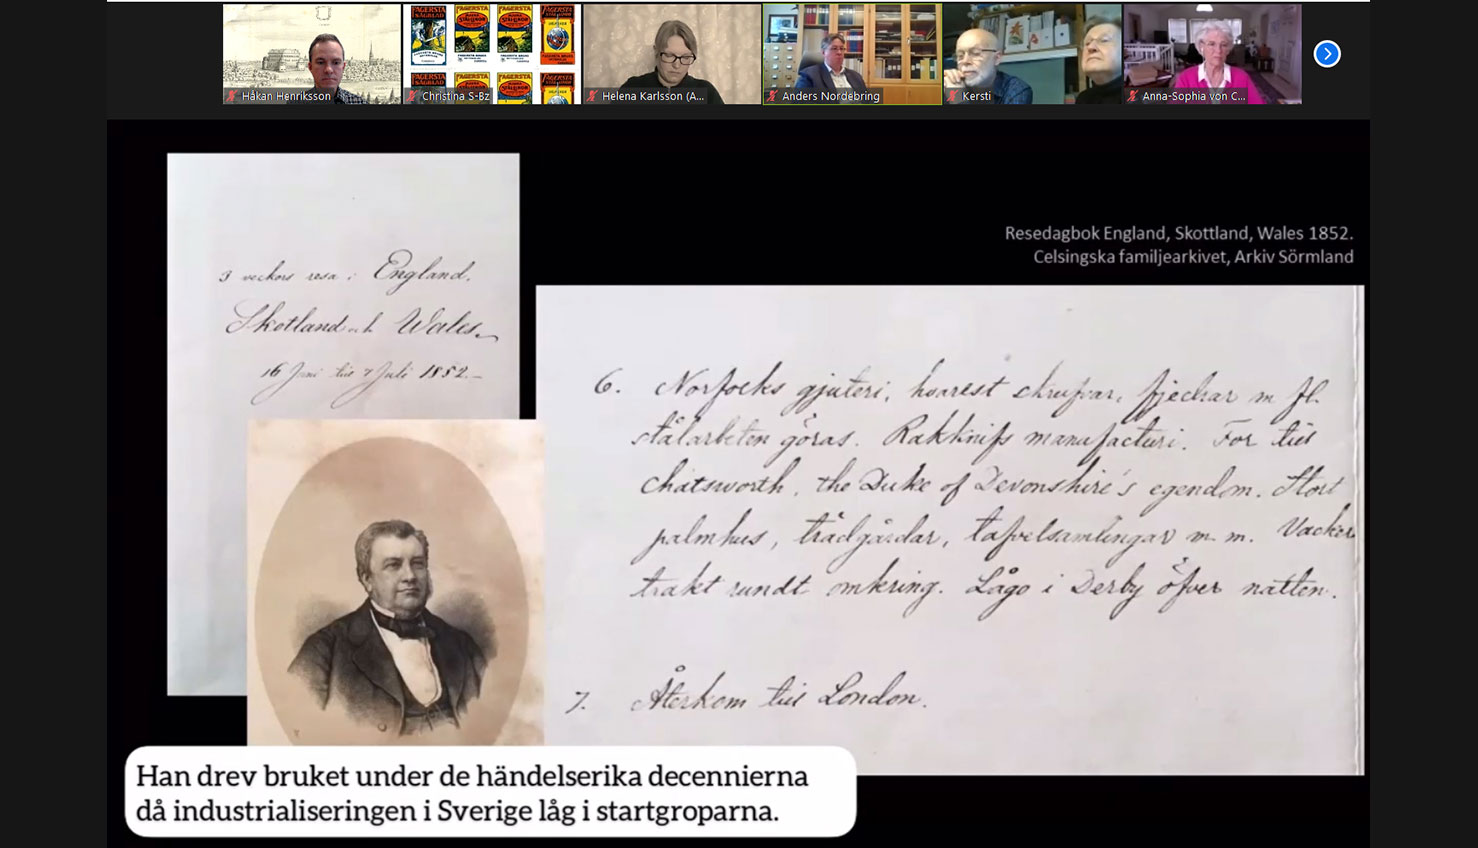 Håkan Henriksson
Christina S-Bz
Helena Karlsson (A...
Anders Nordebring
Kersti
Anna-Sophia von C...
FAGERSTA
FAGERSTA
FAGERSTA
FAGERSTA
Resedagbok England, Skottland, Wales 1852.
Celsingska familjearkivet, Arkiv Sörmland
3 veckors resa i England,
Skotland och Wales
16 Juni till 7 Juli 1852.
6. Norfocks gjuteri, hvarest skrufvar, fjedrar m fl.
stålarbeten göras. Rakknifs manufacturi. For till
Chatsworth, the Duke of Devonshire's egendom. Stort
palmhus, trädgårdar, tafvelsamlingar m. m. Vacker
trakt rundt omkring. Lågo i Derby öfver natten.
7. Återkom till London.
Han drev bruket under de händelserika decennierna
då industrialiseringen i Sverige låg i startgroparna.